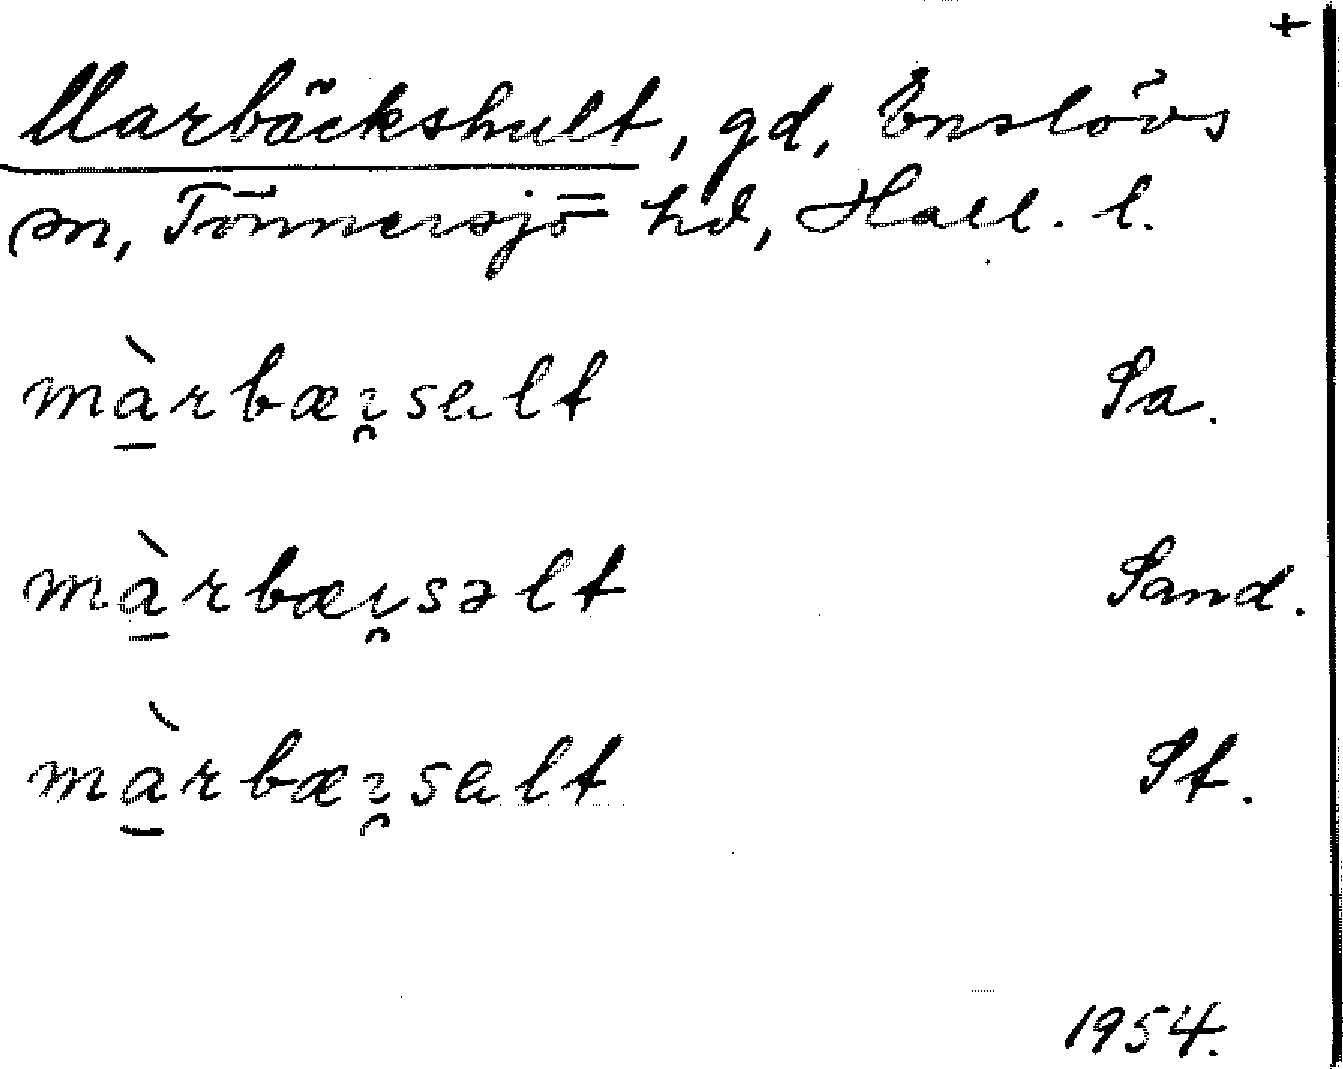 +
Marbäckshult, gd, Enslövs
sn, Tönnersjö hd, Hall. l.
màrbæi̯salt Sa.
màrbæi̯səlt Sand.
màrbæi̯salt St.
1954.